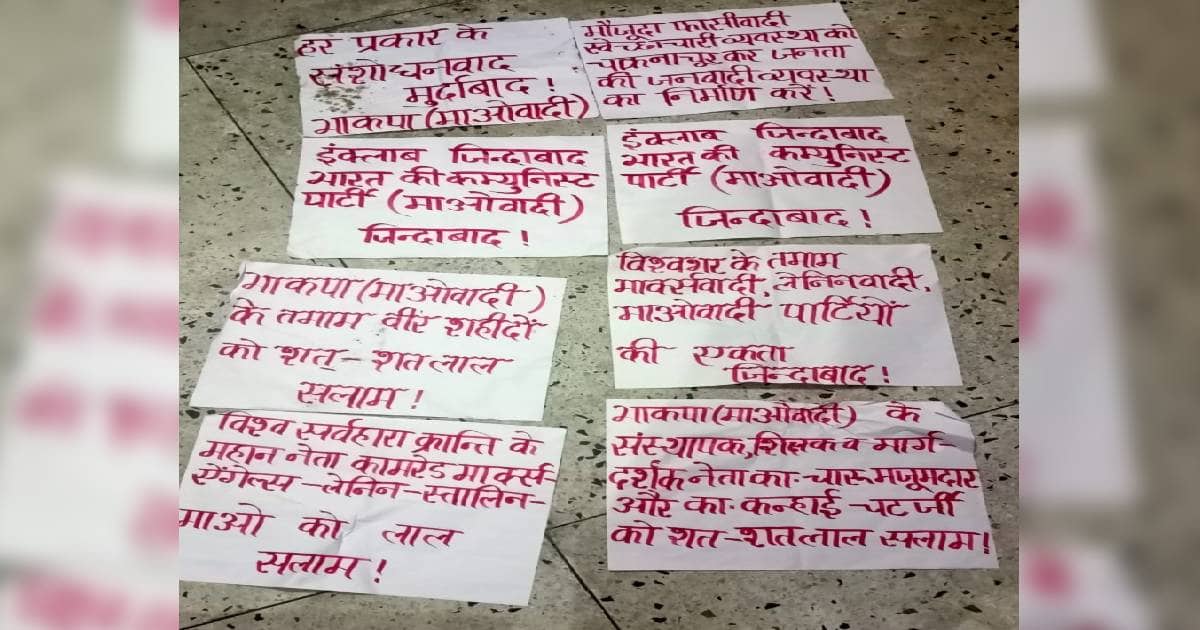 हर प्रकार के
संशोधनवाद
मुर्दाबाद !
भाकपा (माओवादी)
मौजूदा फासीवादी
स्वेच्छाचारी व्यवस्था को
चकनाचूर कर जनता
की जनवादी व्यवस्था
का निर्माण करें !
इंक्लाब जिन्दाबाद
भारत की कम्युनिस्ट
पार्टी (माओवादी)
जिन्दाबाद !
इंक्लाब जिन्दाबाद
भारत की कम्युनिस्ट
पार्टी (माओवादी)
जिन्दाबाद !
भाकपा (माओवादी)
के तमाम वीर शहीदों
को शत्-शत लाल
सलाम !
विश्वभर के तमाम
मार्क्सवादी, लेनिनवादी,
माओवादी पार्टियों
की एकता
जिन्दाबाद !
विश्व सर्वहारा क्रान्ति के
महान नेता कामरेड मार्क्स-
ऐंगेल्स-लेनिन-स्तालिन-
माओ को लाल
सलाम !
भाकपा (माओवादी) के
संस्थापक, शिक्षक व मार्ग-
दर्शक नेता का॰ चारू मजूमदार
और का॰ कन्हाई चटर्जी
को शत-शत लाल सलाम !